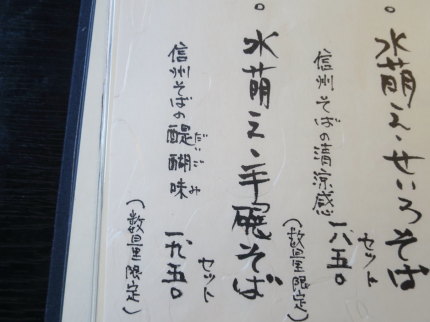 。水萌え・せいろそば
信州そばの清涼感
セット
一八五〇
(数量限定)
。水萌え・手碾そば
信州そばの醍醐味
だいごみ
セット
一九五〇
(数量限定)